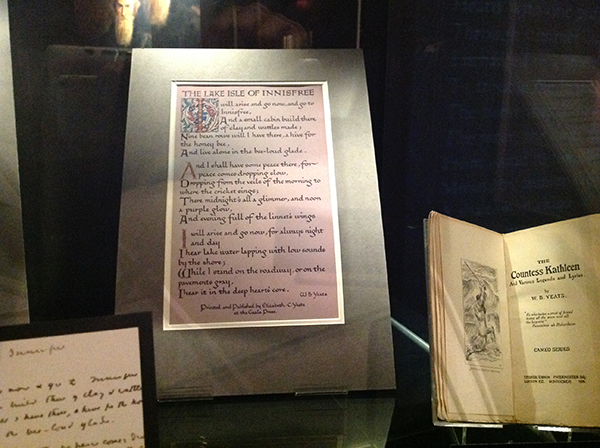 THE LAKE ISLE OF INNISFREE
I will arise and go now, and go to
Innisfree,
And a small cabin build there
of clay and wattles made;
Nine bean rows will I have there, a hive for
the honey bee,
And live alone in the bee-loud glade.
And I shall have some peace there, for
peace comes dropping slow,
Dropping from the veils of the morning to
where the cricket sings;
There midnight's all a glimmer, and noon
a purple glow,
And evening full of the linnet's wings
I will arise and go now, for always night
and day
I hear lake water lapping with low sounds
by the shore;
While I stand on the roadway, or on the
pavements gray,
I hear it in the deep heart's core.
W B Yeats
Printed and Published by Elizabeth C. Yeats
at the Cuala Press.
THE
Countess Kathleen
And Various Legends and Lyrics.
by
W. B. YEATS.
CAMEO SERIES
Innisfree
now & go to Innisfree
build there of clay & wattles
have there, a hive for the ho
bee-loud glade.
peace comes